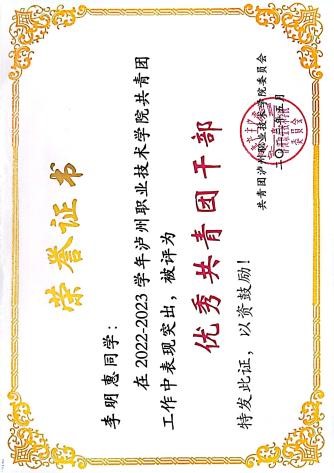 荣誉证书
李明惠同学：
在 2022-2023 学年泸州职业技术学院共青团
工作中表现突出，被评为
优秀共青团干部
特发此证，以资鼓励！
共青团泸州职业技术学院委员会
二〇二三年五月